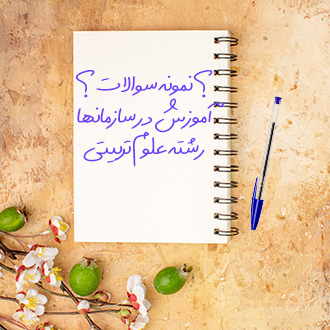 ؟ نمونه سوالات ؟
آموزش در سازمانها
رشته علوم تربیتی